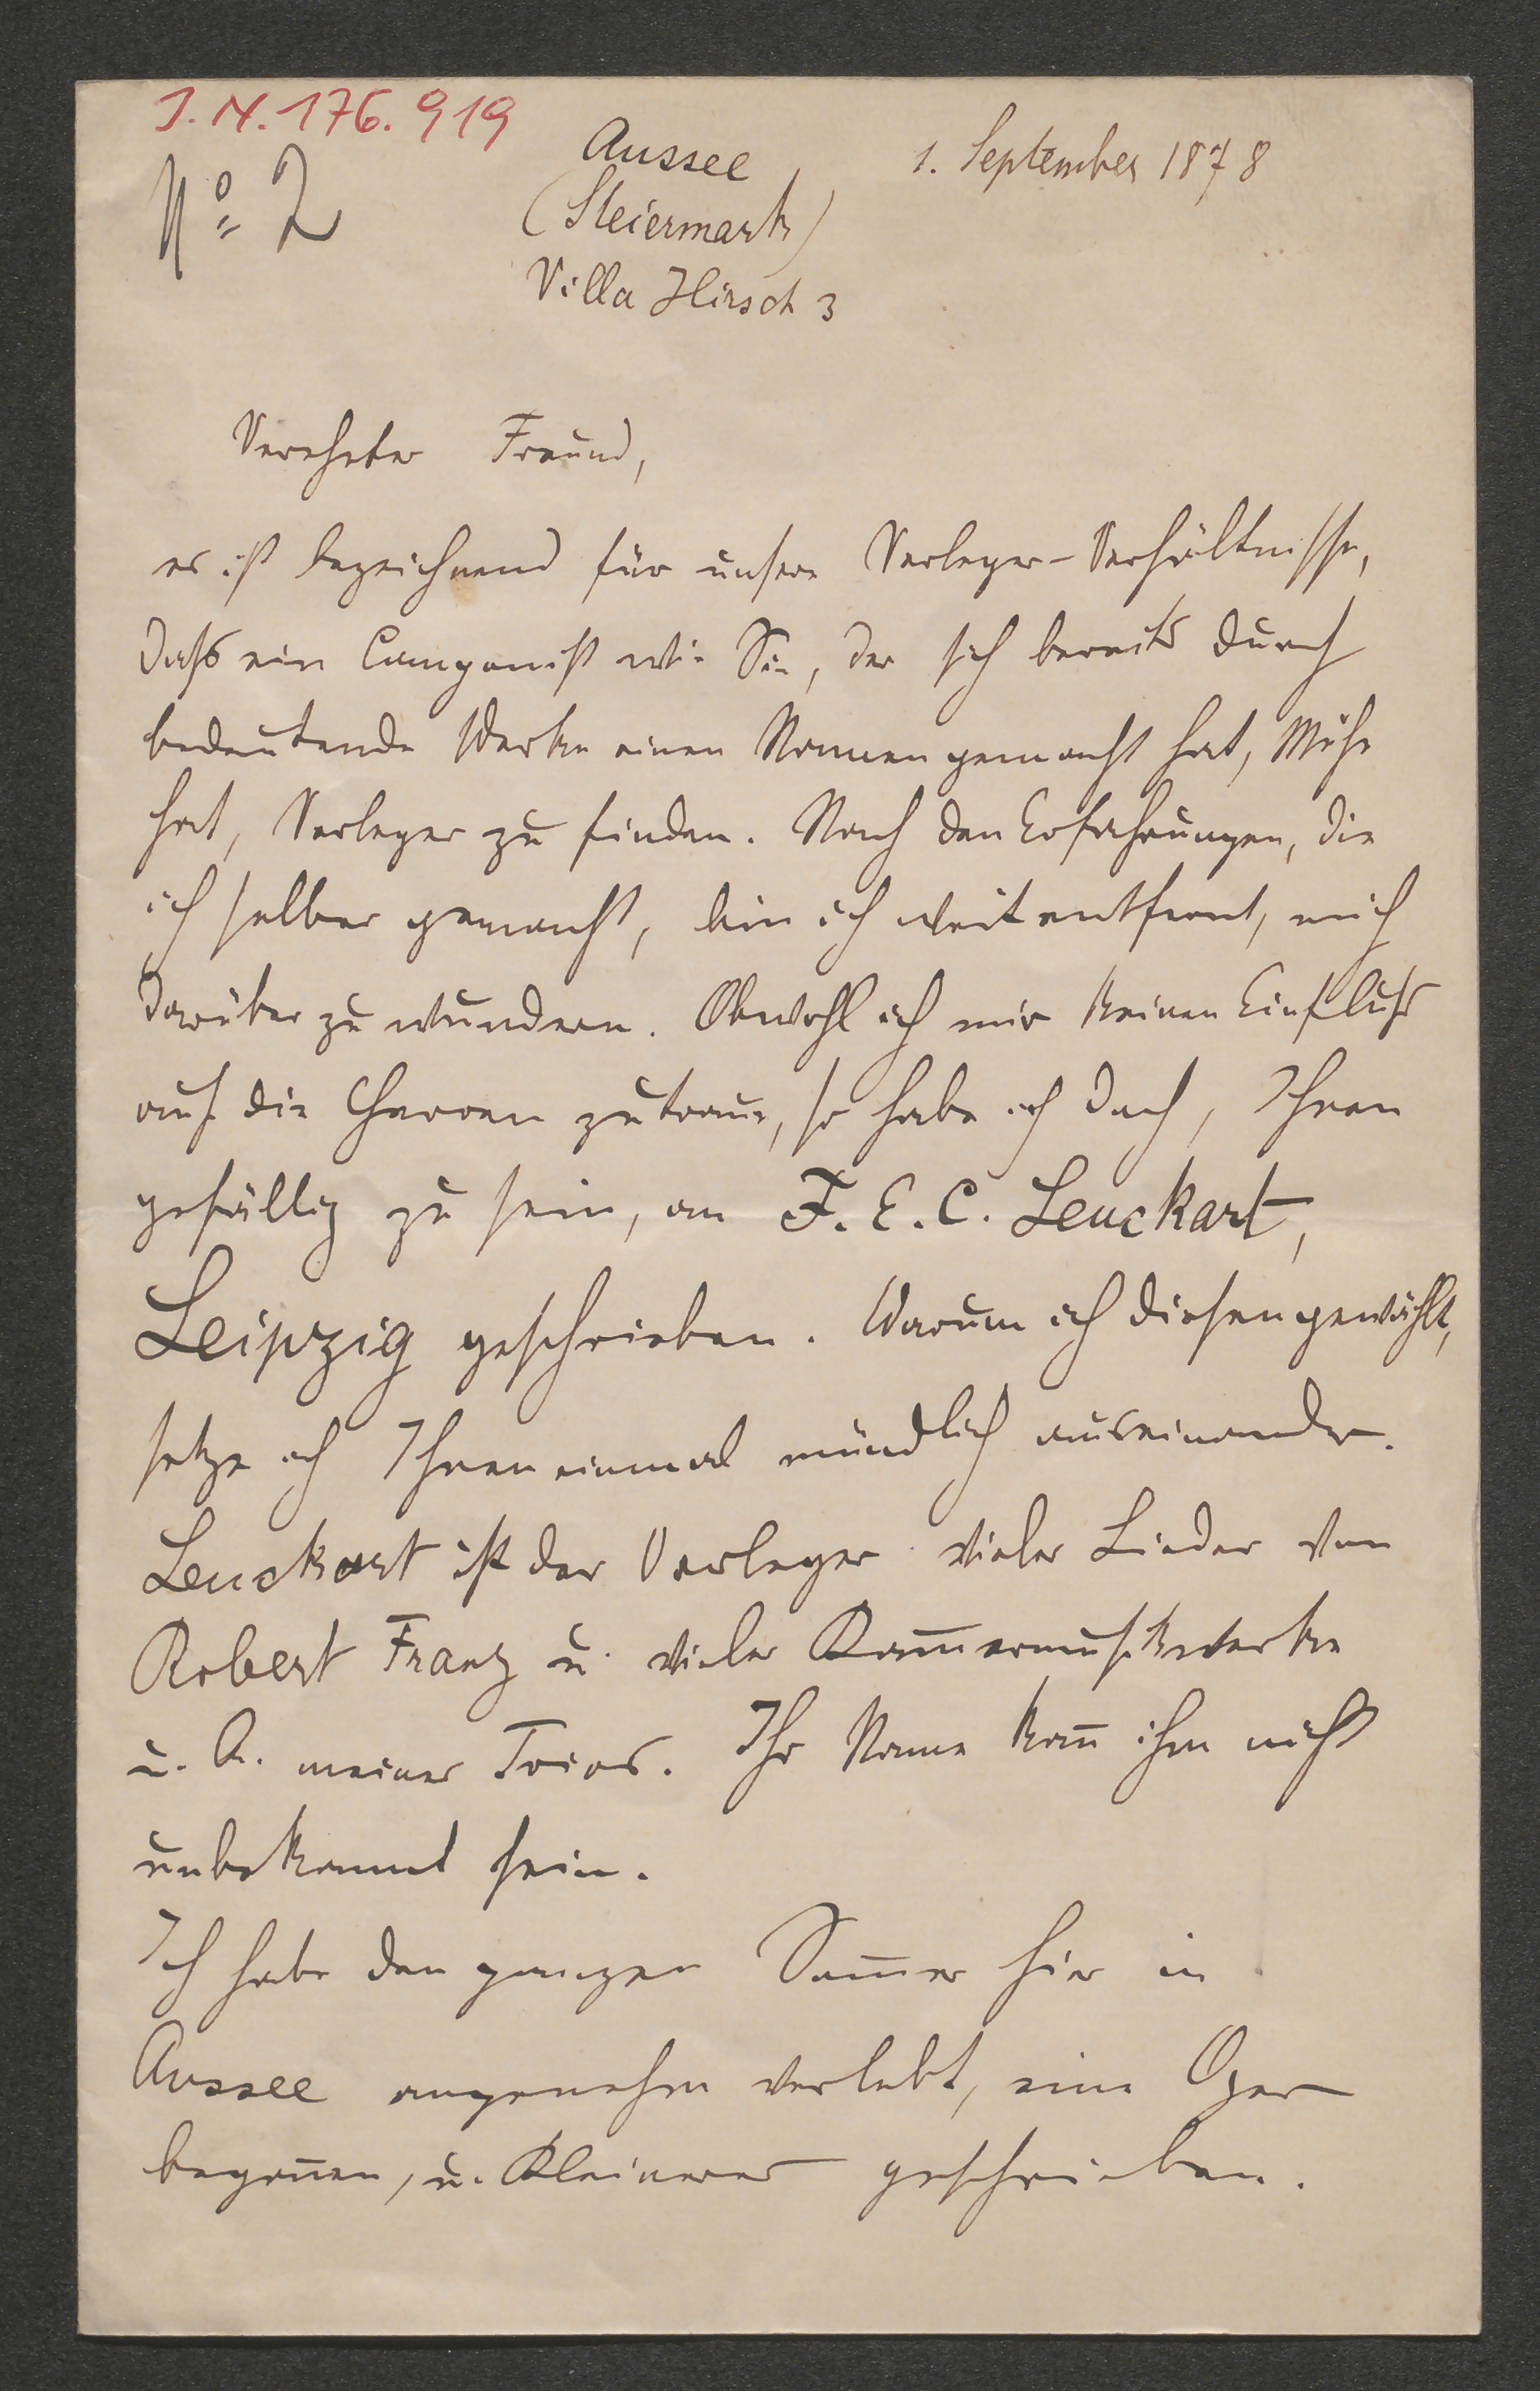 I.N. 176.919
No 2
Aussee 1. September 1878
(Steiermark)
Villa Hirsch 3
Verehrter Freund,
es ist bezeichnend für unsere Verleger-Verhältnisse,
daß ein Componist wie Sie, der sich bereits durch
bedeutende Werke einen Namen gemacht hat, Mühe
hat, Verleger zu finden. Nach den Erfahrungen, die
ich selber gemacht, bin ich weit entfernt, mich
darüber zu wundern. Obwohl ich mir keinen Einfluß
auf die Herren zutraue, so habe ich doch, Ihnen
gefällig zu sein, an F. E. C. Leuckart,
Leipzig geschrieben. Warum ich diesen gewählt,
setze ich Ihnen einmal mündlich auseinander.
Leuckart ist der Verleger vieler Lieder von
Robert Franz u. vieler Kam̅ermusikwerke
u. A. meines Trios. Ihr Name kan̅ ihm nicht
unbekannt sein.
Ich habe den ganzen Som̅er hier in
Aussee angenehm verlebt, eine Oper
begon̅en, u. Kleineres geschrieben.